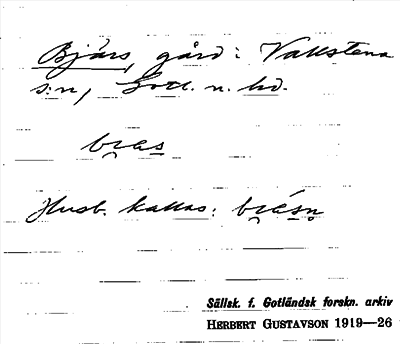 Bjärs, gård i Vallstena
s:n, Gotl. n. hd.
bras
Husb. kallas: brásn
Sällsk. f. Gotländsk forskn. arkiv
HERBERT GUSTAVSON 1919—26